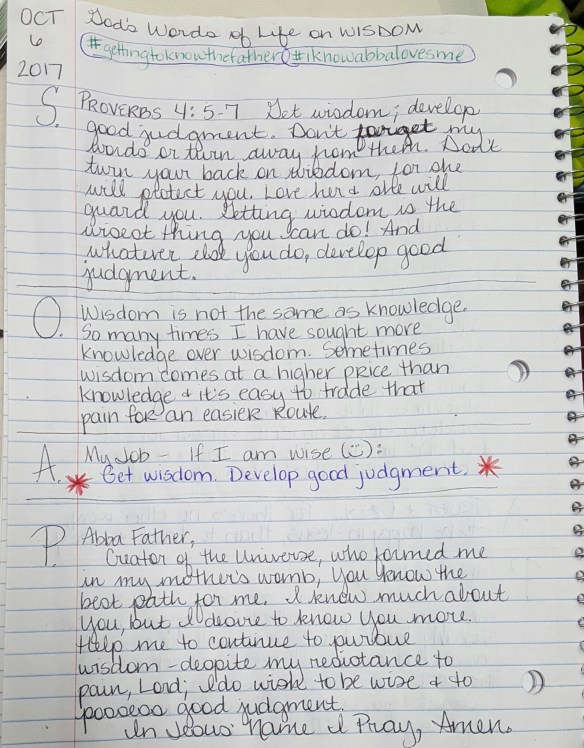 OCT
6
2017
God's Words of Life on WISDOM
#gettingtoknowthefather #iknowabbalovesme
S. PROVERBS 4:5-7 Get wisdom; develop
good judgment. Don't forget my
words or turn away from them. Don't
turn your back on wisdom, for she
will protect you. Love her & she will
guard you. Getting wisdom is the
wisest thing you can do! And
whatever else you do, develop good
judgment.
O. Wisdom is not the same as knowledge.
So many times I have sought more
knowledge over wisdom. Sometimes
wisdom comes at a higher price than
knowledge & it's easy to trade that
pain for an easier route.
A. My Job - If I am wise (☺):
* Get wisdom. Develop good judgment. *
P. Abba Father,
Creator of the Universe, who formed me
in my mother's womb, You know the
best path for me. I know much about
You, but I desire to know You more.
Help me to continue to pursue
wisdom - despite my resistance to
pain, Lord; I do wish to be wise & to
possess good judgment.
In Jesus' Name I Pray, Amen.